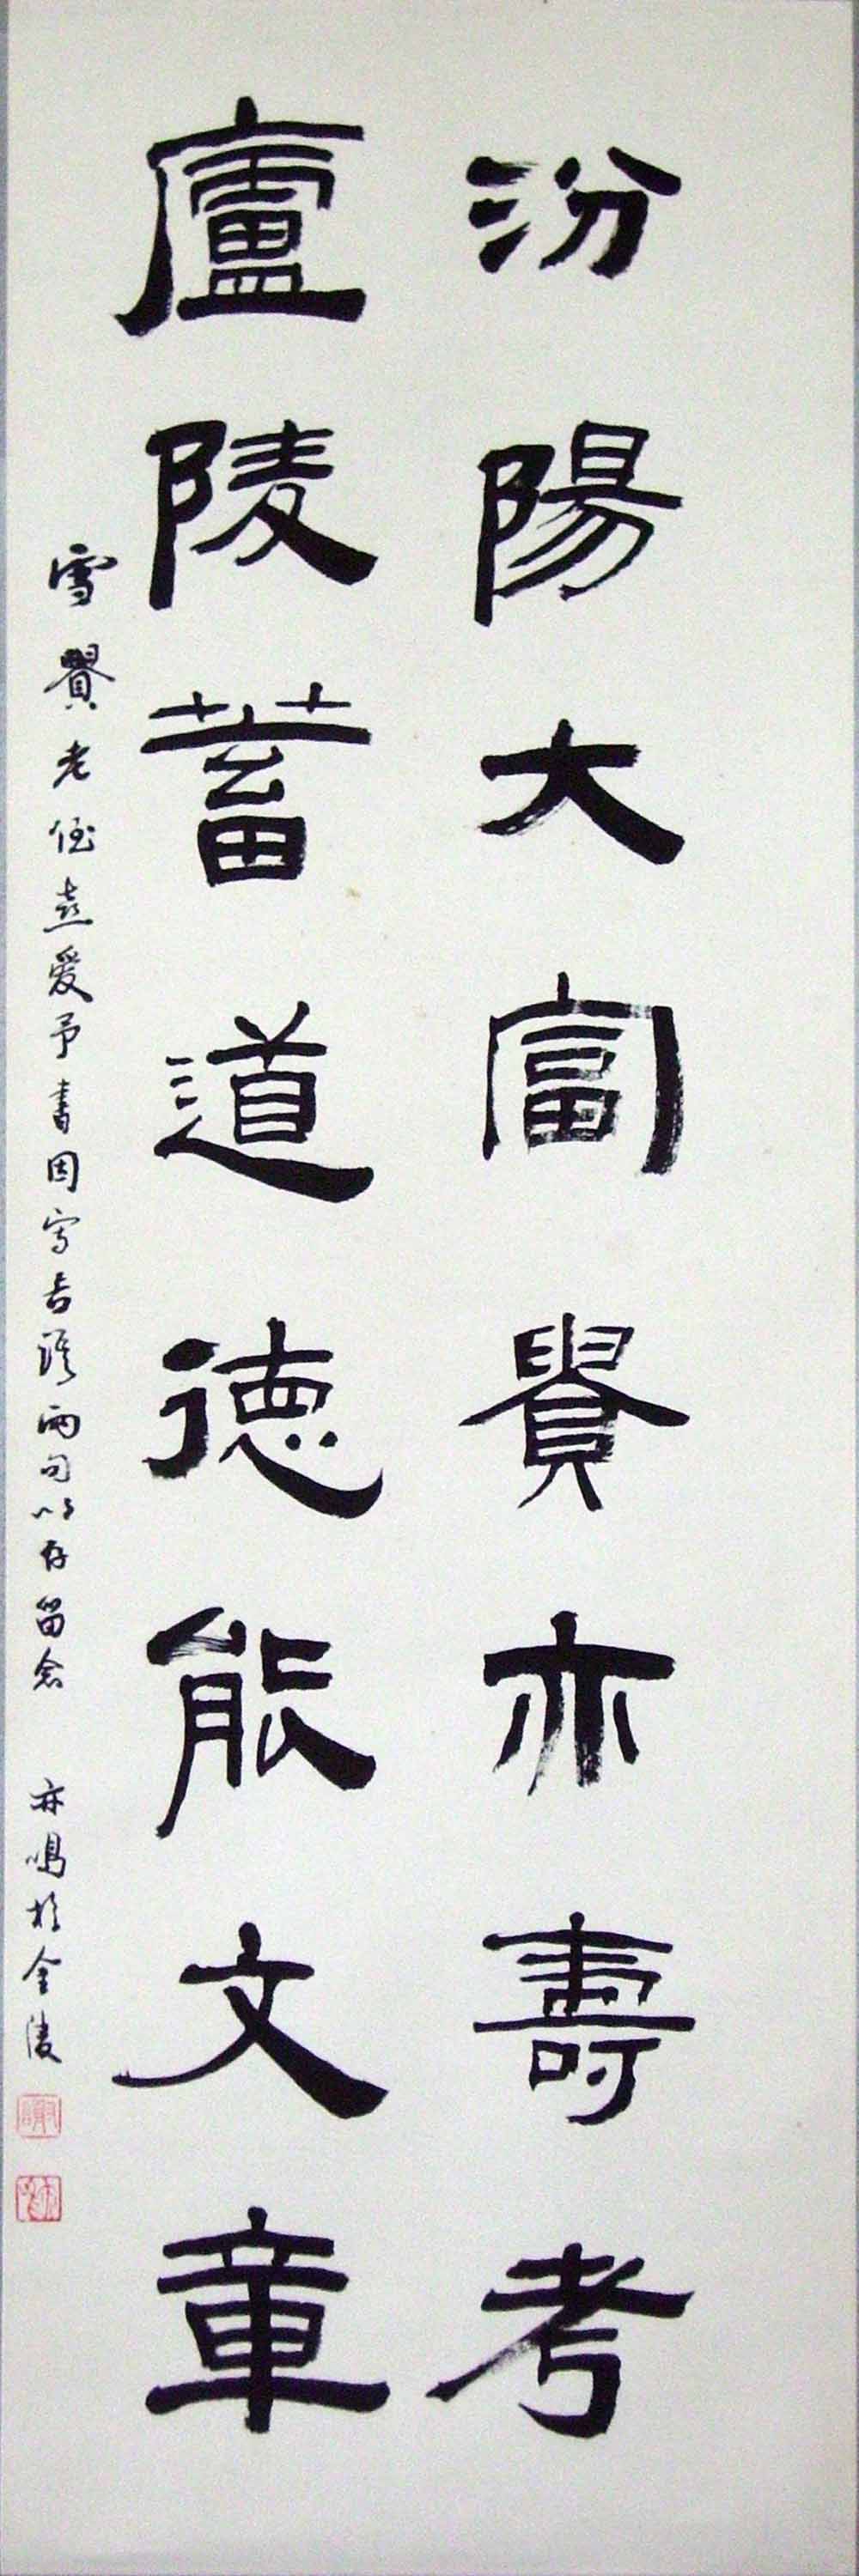 汾陽大富貴亦壽考
廬陵蓄道德能文章
雪賢老侄喜愛予書因寫古語兩句以存留念
亦鳴於金陵